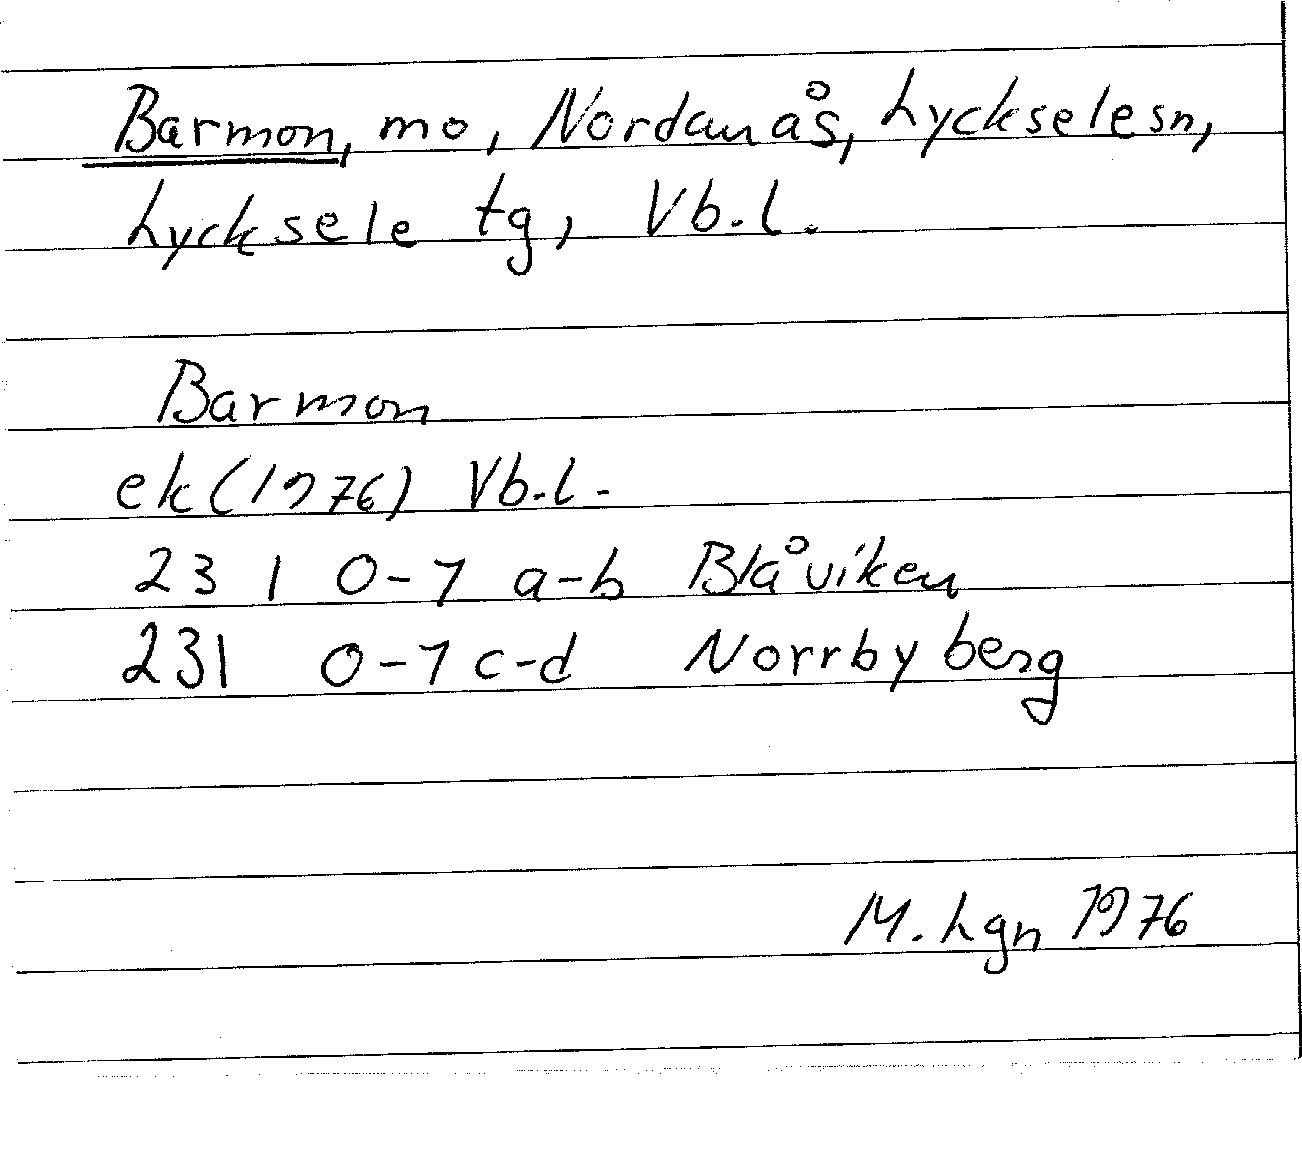 Barmon, mo, Nordanås, Lycksele sn,
Lycksele tg, Vb.l.
Barmon
ek (1976) Vb.l.
23 I 0-1 a-b Blåviken
23I 0-1 c-d Norrbyberg
M. Lgn 1976